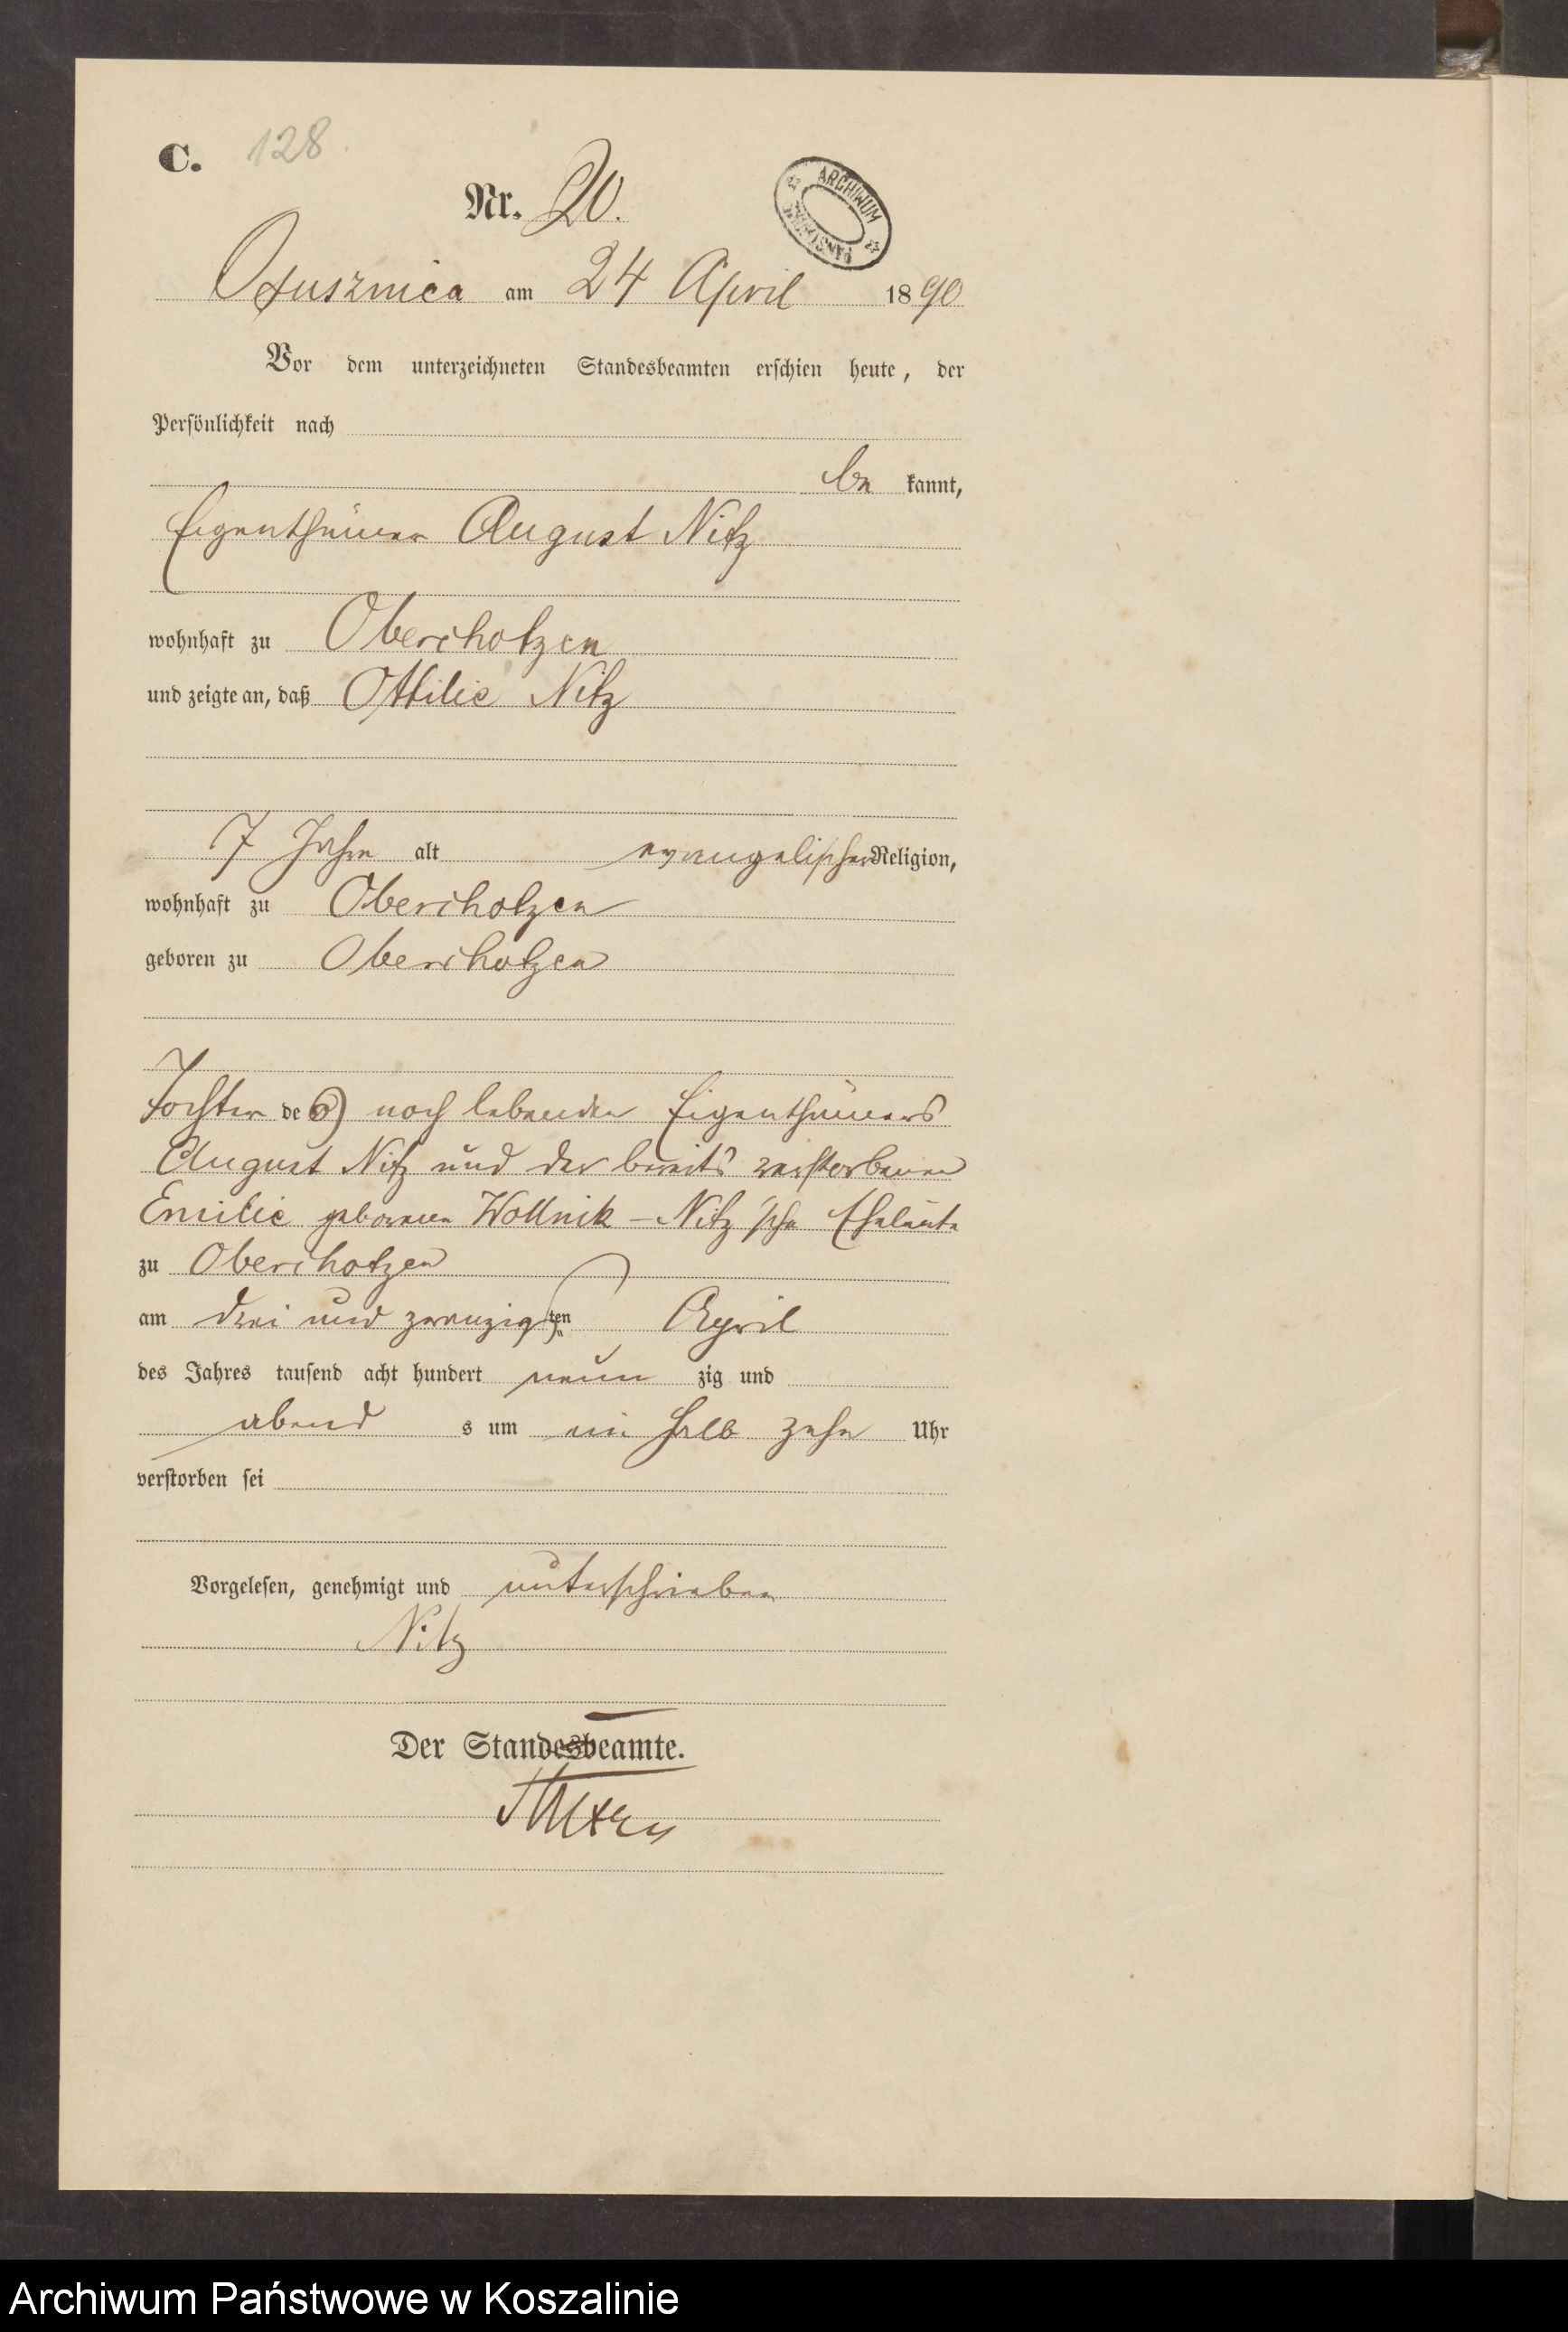 C. 128.
Nr. 20.
ARCHIWUM PAŃSTWOWE
Ostusznica am 24 April 1890
Vor dem unterzeichneten Standesbeamten erschien heute, der
Persönlichkeit nach
be kannt,
Eigenthümer August Nitz
wohnhaft zu Oberchotzen
und zeigte an, daß Ottilie Nitz
7 Jahre alt evangelischer Religion,
wohnhaft zu Oberchotzen
geboren zu Oberchotzen
Tochter des noch lebenden Eigenthümers
August Nitz und der bereits verstorbenen
Emilie geborenen Wollnik – Nitz'sche Eheleute
zu Oberchotzen
am drei und zwanzig ten April
des Jahres tausend acht hundert neun zig und
abend s um ein halb zehn Uhr
verstorben sei
Vorgelesen, genehmigt und unterschrieben
Nitz
Der Standesbeamte.
Archiwum Państwowe w Koszalinie